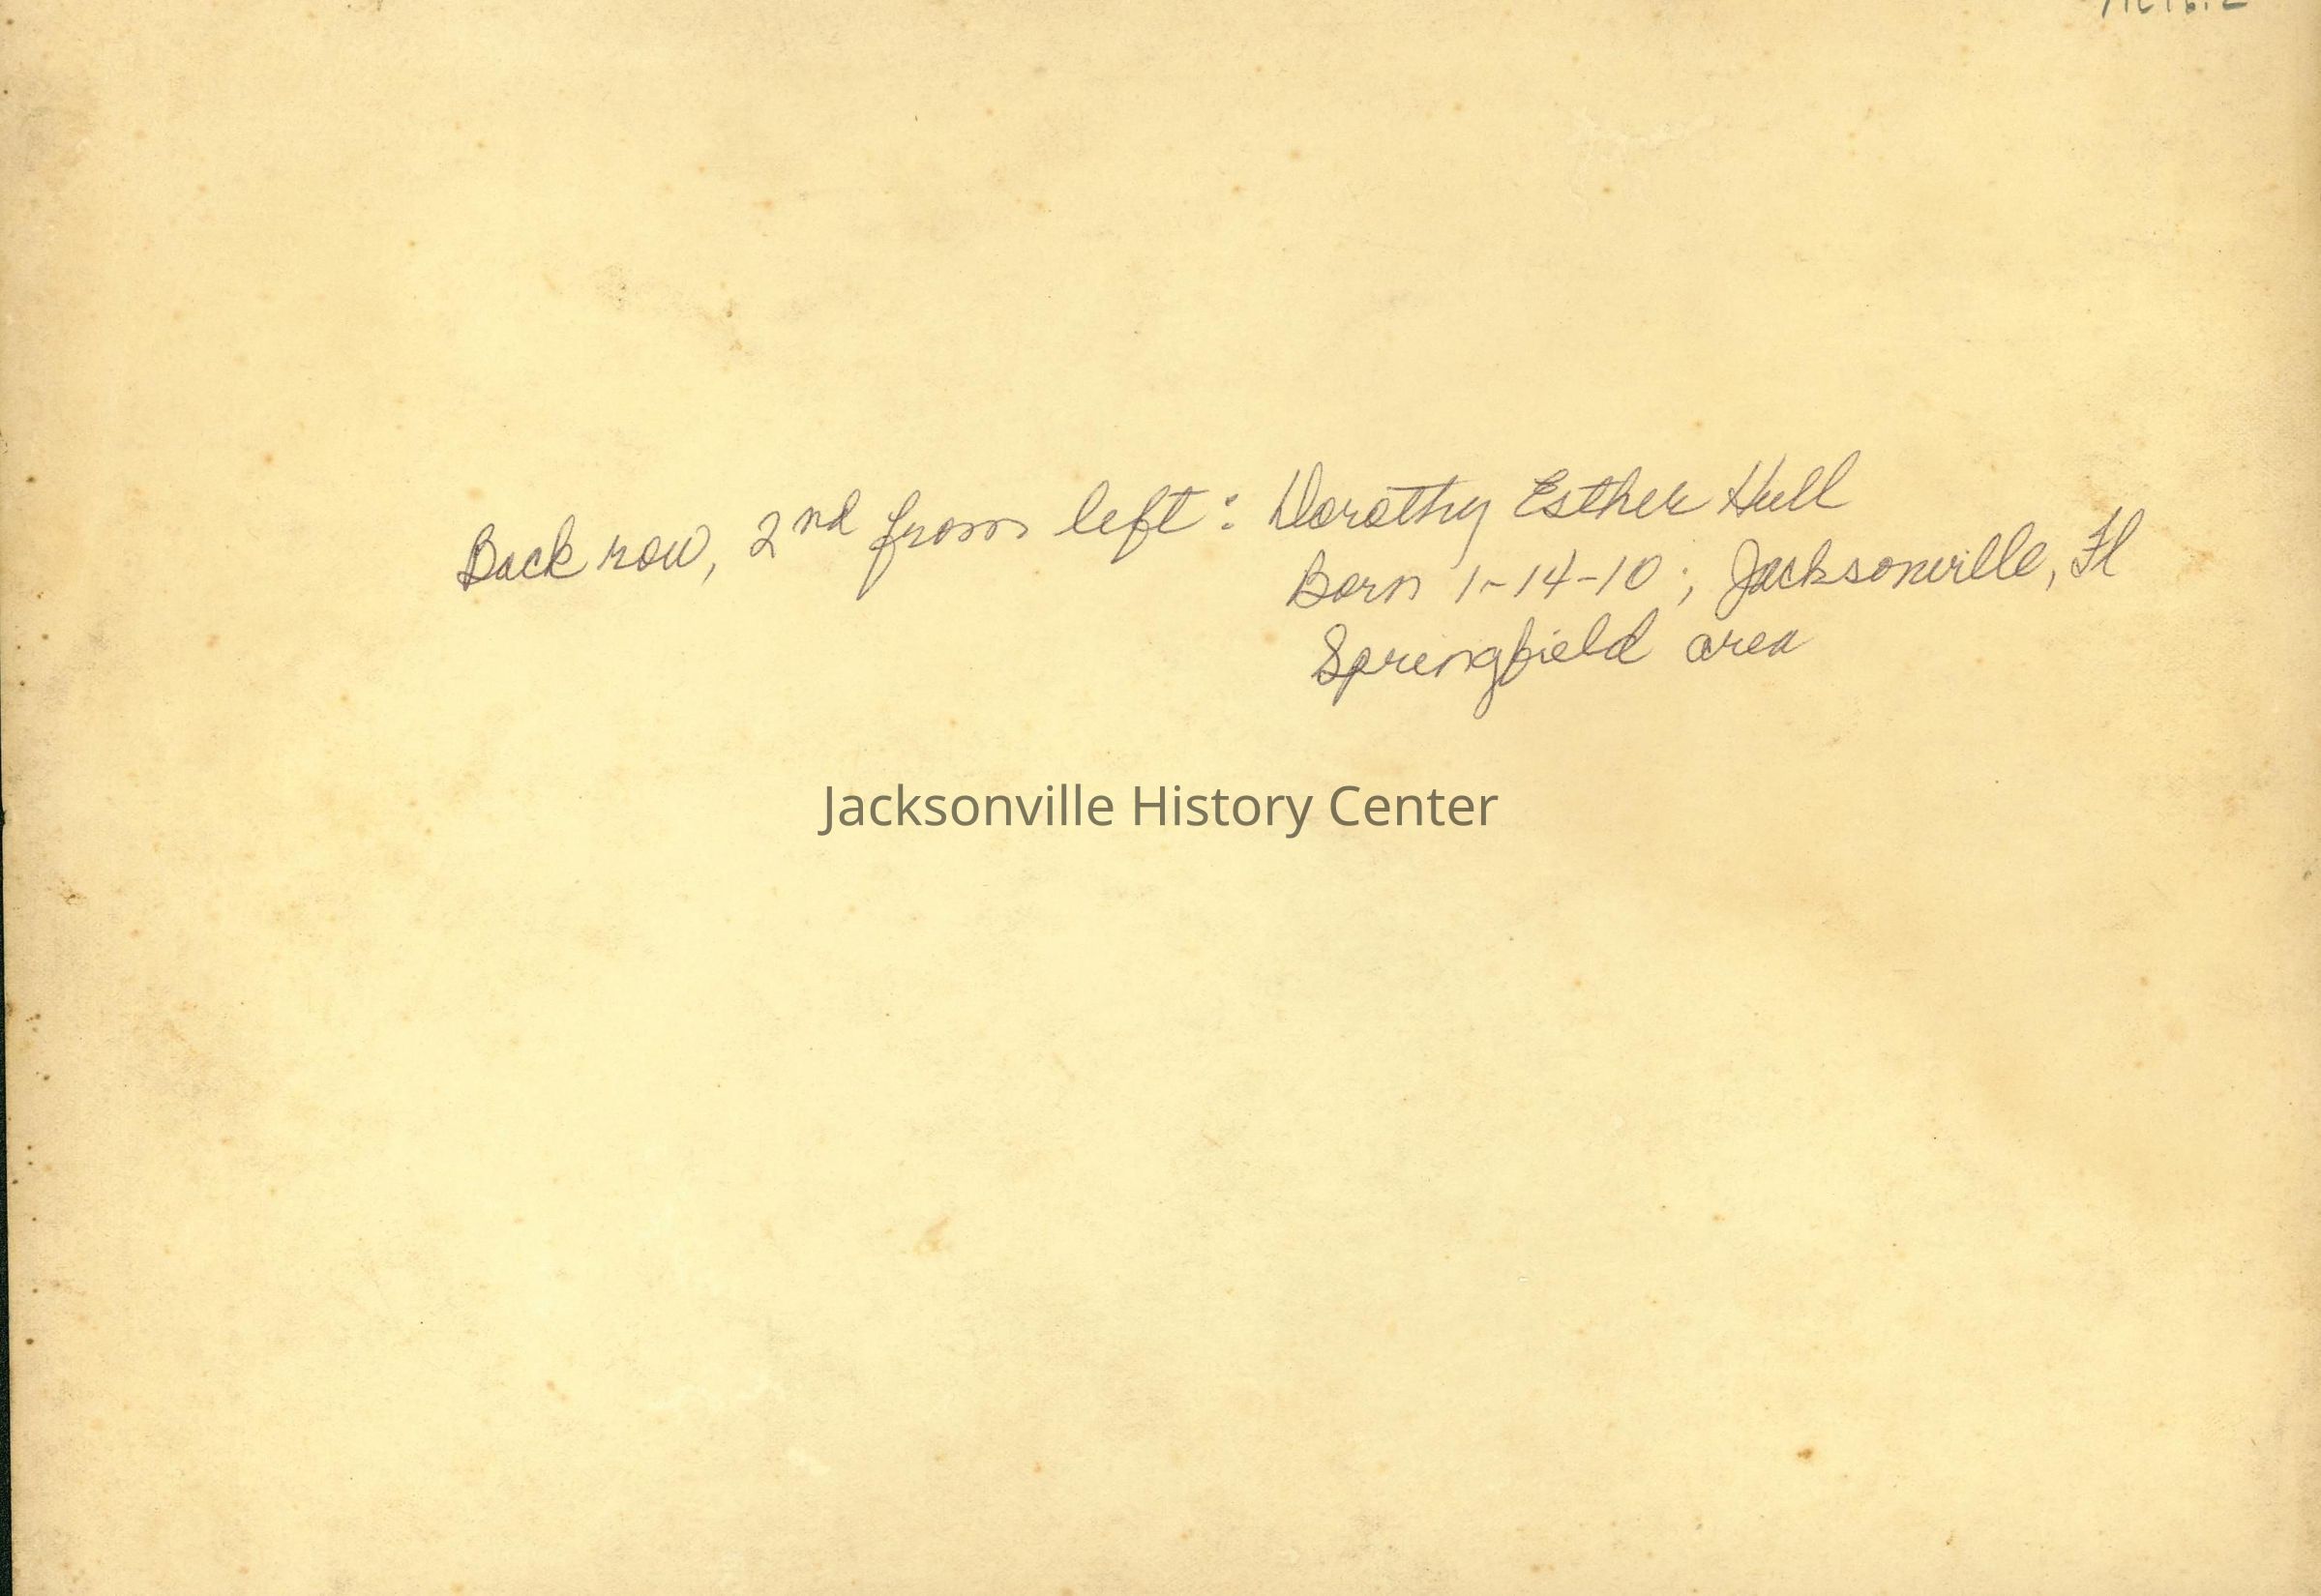 Back row, 2nd from left: Dorothy Esther Hull
Born 1-14-10; Jacksonville, Fl
Springfield area
Jacksonville History Center